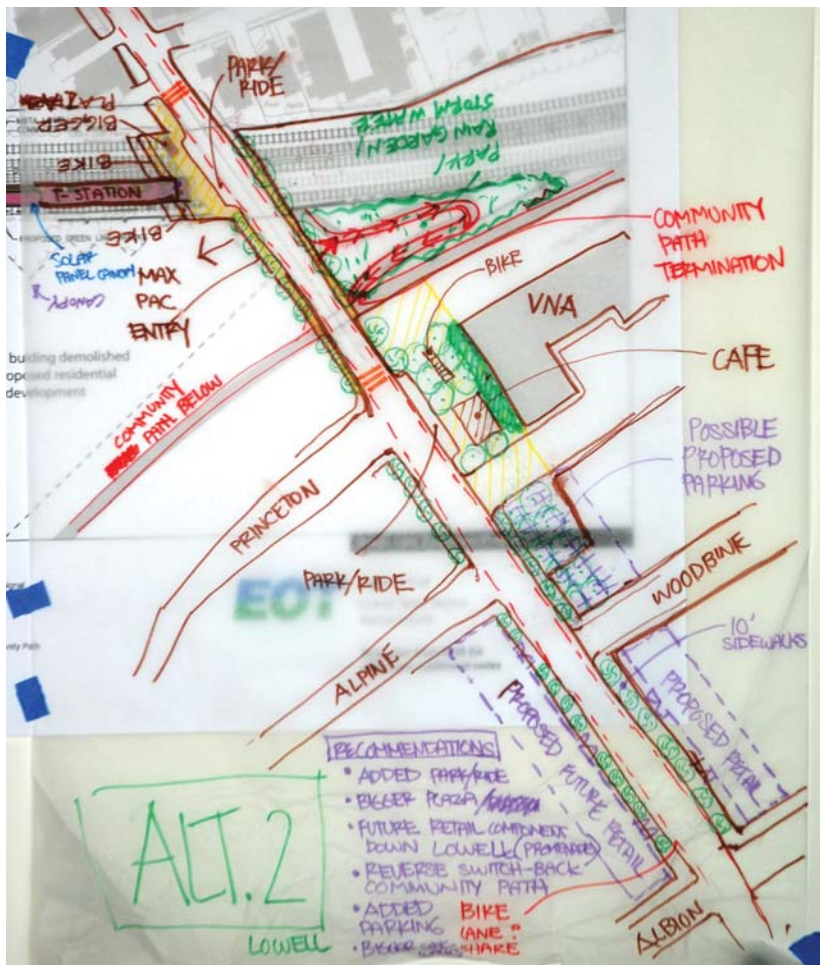 PARK/
RIDE
PLAZA
BIGGER
BIKE
T-STATION
BIKE
SOLAR
PANEL CANOPY
CANOPY
MAX
PAC
ENTRY
STORM WATER
RAIN GARDEN/
PARK/
COMMUNITY
PATH
TERMINATION
BIKE
VNA
CAFE
building demolished
proposed residential
development
COMMUNITY
PATH BELOW
POSSIBLE
PROPOSED
PARKING
PRINCETON
PARK/RIDE
EOT
WOODBINE
10'
SIDEWALKS
ALPINE
PROPOSED FUTURE RETAIL
PROPOSED RETAIL
RECOMMENDATIONS
• ADDED PARK/RIDE
• BIGGER PLAZA/
• FUTURE RETAIL COMPONENT
DOWN LOWELL (PROMENADE)
• REVERSE SWITCH-BACK
COMMUNITY PATH
• ADDED
PARKING
• BIGGER
BIKE
LANE?
SHARE
ALT. 2
LOWELL
ALBION